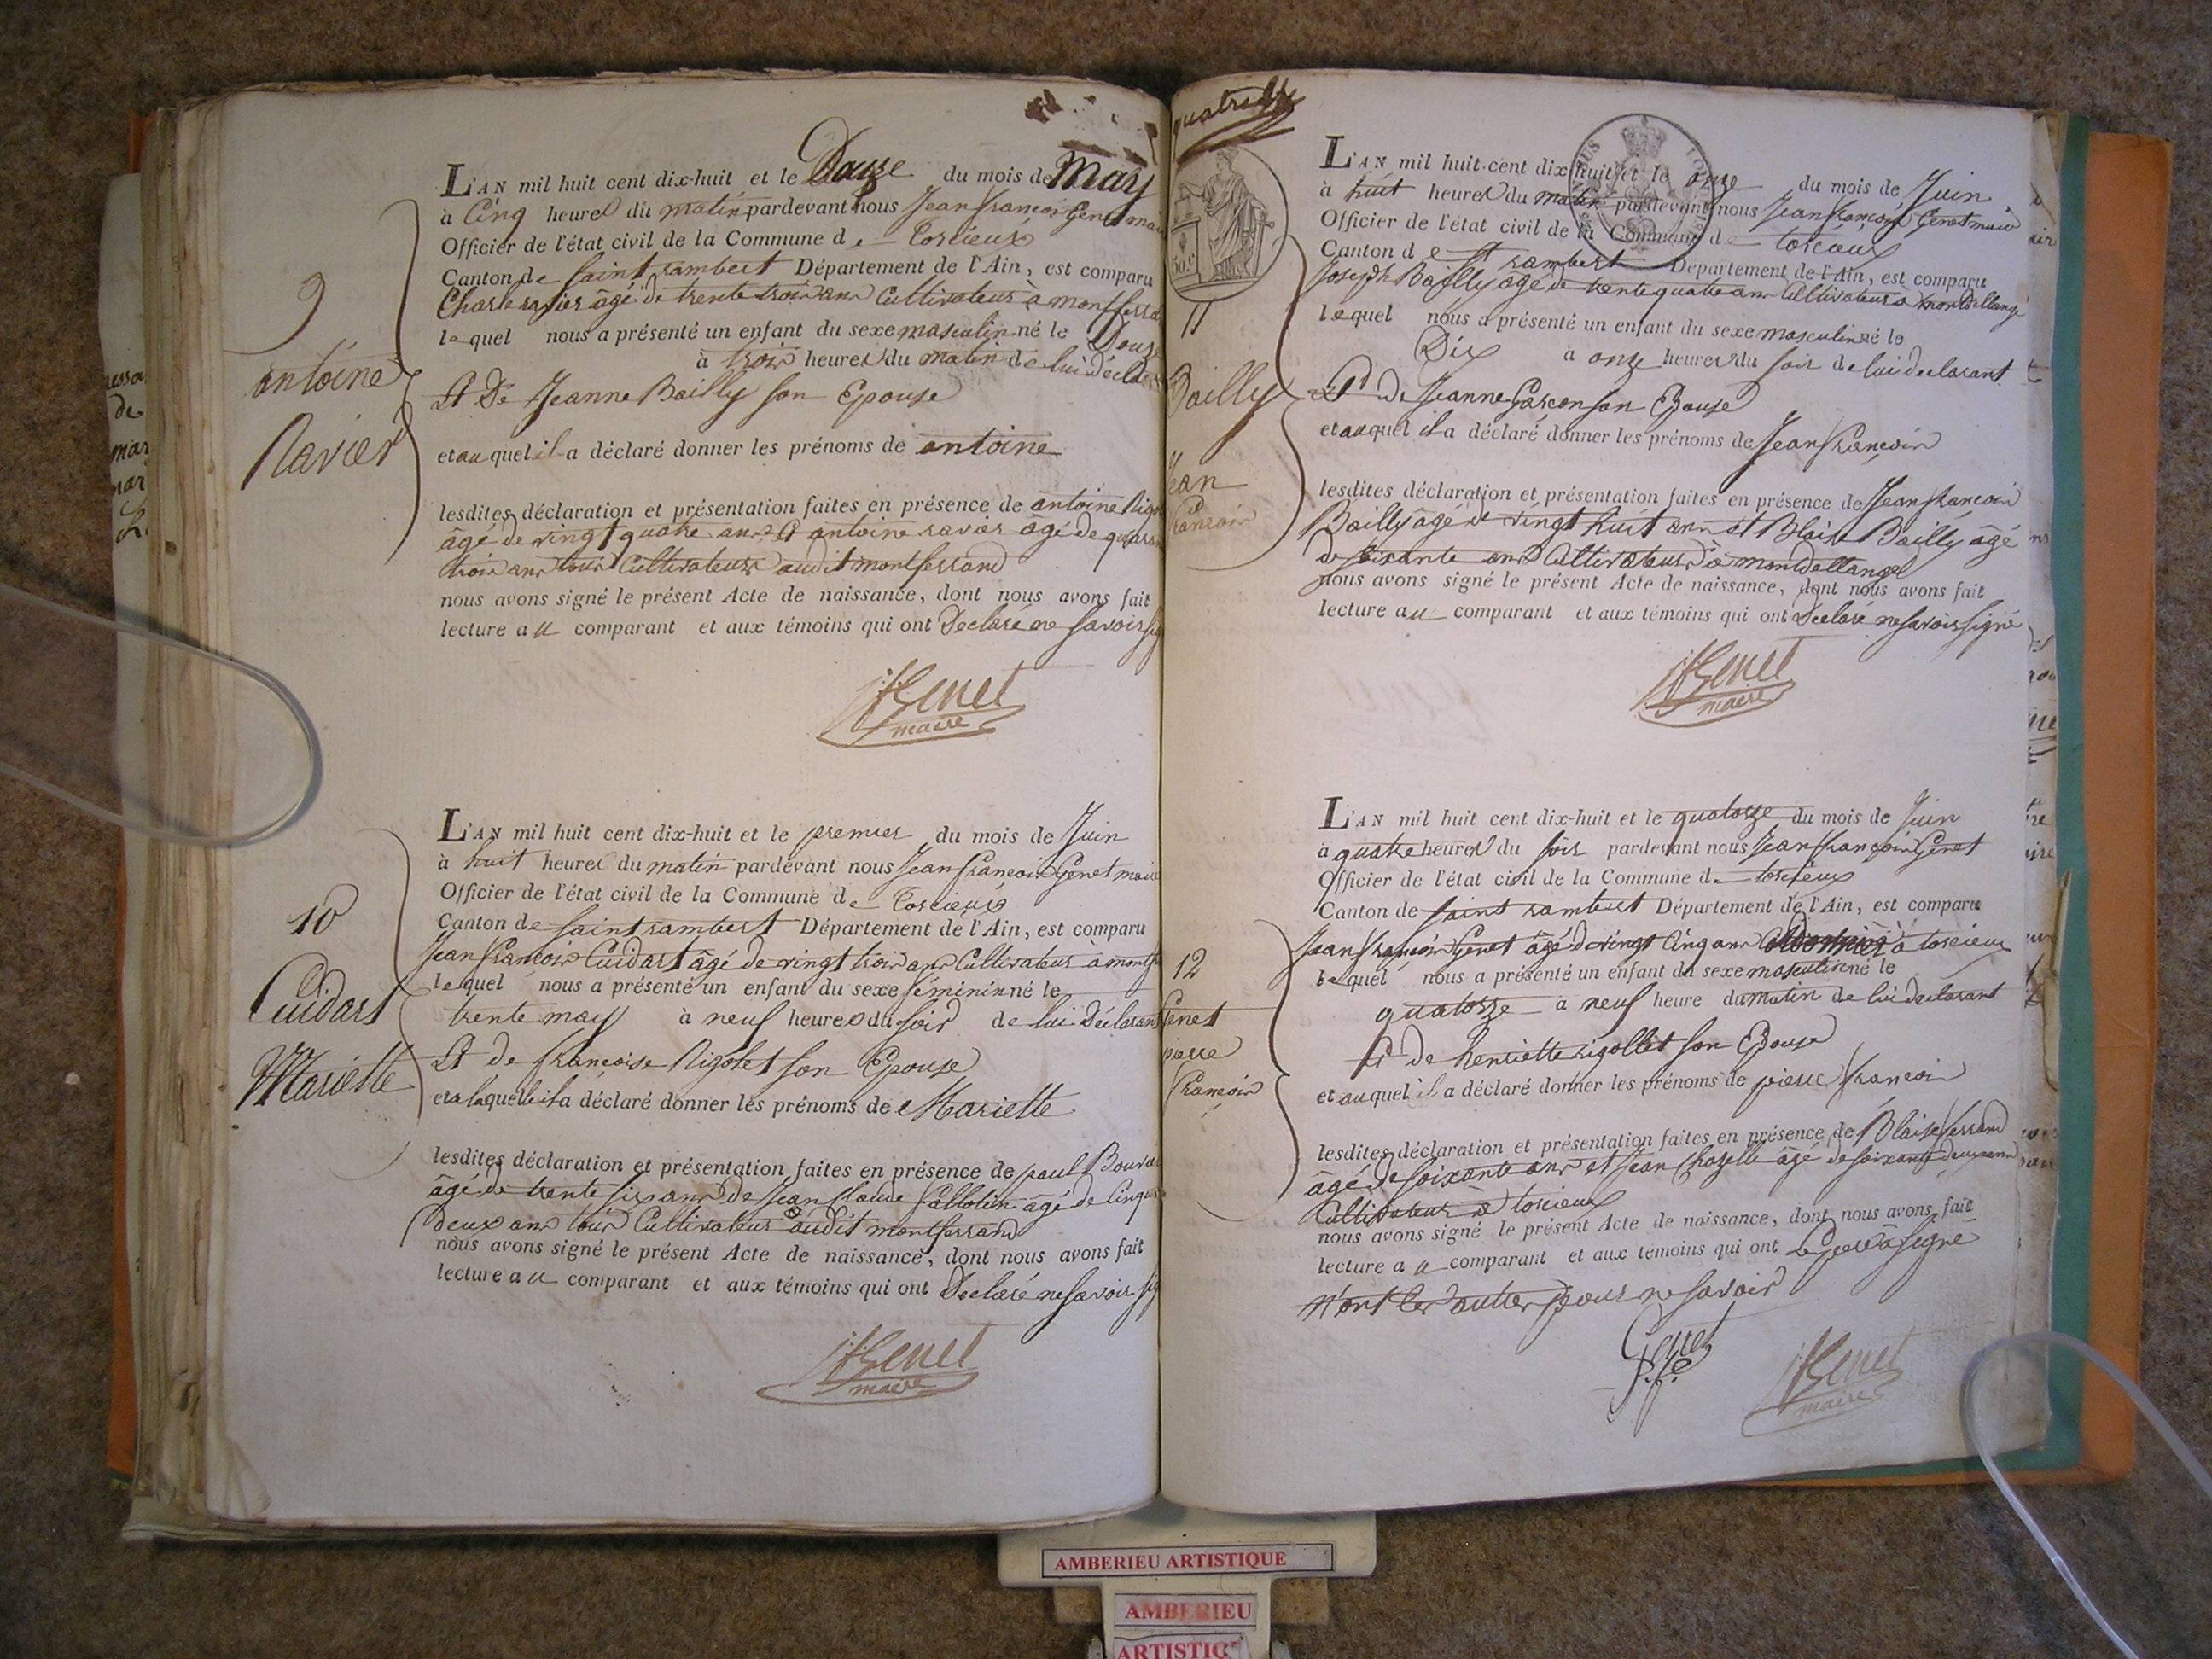 9
antoine
Ravier
L'AN mil huit cent dix-huit et le Douze du mois de May
à Cinq heures du matin pardevant nous Jean françois Genet
Officier de l'état civil de la Commune de torcieux
Canton de Saint rambert Département de l'Ain, est comparu
Charle ravier âgé de trente trois ans Cultivateur à
lequel nous a présenté un enfant du sexe masculin né le Douze
à trois heures du matin de lui
Et De Jeanne Bailly son Epouse
et auquel il a déclaré donner les prénoms de antoine
lesdites déclaration et présentation faites en présence de antoine
âgé de vingt quatre ans Et antoine ravier âgé de
trois ans tous Cultivateurs audit montferrand
nous avons signé le présent Acte de naissance, dont nous avons fait
lecture au comparant et aux témoins qui ont Declaré ne savoir
JfGenet
maire
10
Cuidart
Mariette
L'AN mil huit cent dix-huit et le premier du mois de Juin
à huit heures du matin pardevant nous Jean françois Genet maire
Officier de l'état civil de la Commune de torcieux
Canton de saint rambert Département de l'Ain, est comparu
Jean françois Cuidart âgé de vingt trois ans Cultivateur à
lequel nous a présenté un enfant du sexe féminin né le
trente may à neuf heures du soir de lui Déclarant
Et de françoise Rigolet son Epouse
et a laquelle il a déclaré donner les prénoms de Mariette
lesdites déclaration et présentation faites en présence de paul
âgé de trente six ans De Jean Claude âgé de
deux ans tous Cultivateurs audit montferrand
nous avons signé le présent Acte de naissance, dont nous avons fait
lecture au comparant et aux témoins qui ont Declaré ne savoir
JfGenet
maire
50.C
11
Bailly
Jean
françois
L'AN mil huit cent dix-huit et le onze du mois de Juin
à huit heures du matin pardevant nous Jean françois Genet maire
Officier de l'état civil de la Commune de torcieux
Canton de St rambert Département de l'Ain, est comparu
Joseph Bailly âgé de trente quatre ans Cultivateur à
lequel nous a présenté un enfant du sexe masculin né le
Dix à onze heures du soir de lui declarant
Et de Jeanne Garcon son Epouse
et auquel il a déclaré donner les prénoms de Jean françois
lesdites déclaration et présentation faites en présence de Jean françois
Bailly âgé de vingt huit ans et Blaise Bailly âgé
de soixante ans Cultivateurs à mondellange
nous avons signé le présent Acte de naissance, dont nous avons fait
lecture au comparant et aux témoins qui ont Declaré ne savoir signé
JfGenet
maire
12
Genet
pierre
françois
L'AN mil huit cent dix-huit et le quatorze du mois de Juin
à quatre heures du soir pardevant nous Jean françois Genet
Officier de l'état civil de la Commune de torcieux
Canton de saint rambert Département de l'Ain, est comparu
Jean françois Genet âgé de vingt Cinq ans à torcieux
lequel nous a présenté un enfant du sexe masculin né le
quatorze à neuf heure du matin de lui declarant
Et de henriette rigollet son Epouse
et auquel il a déclaré donner les prénoms de pierre françois
lesdites déclaration et présentation faites en présence de Blaise ferrand
âgé de soixante ans et Jean Chazelle âgé de soixante deux ans
Cultivateurs à torcieux
nous avons signé le présent Acte de naissance, dont nous avons fait
lecture au comparant et aux témoins qui ont Le pere à signé
n'ont les autres pour ne savoir
Genet
JfGenet
maire
AMBERIEU ARTISTIQUE
AMBERIEU
ARTISTIQ